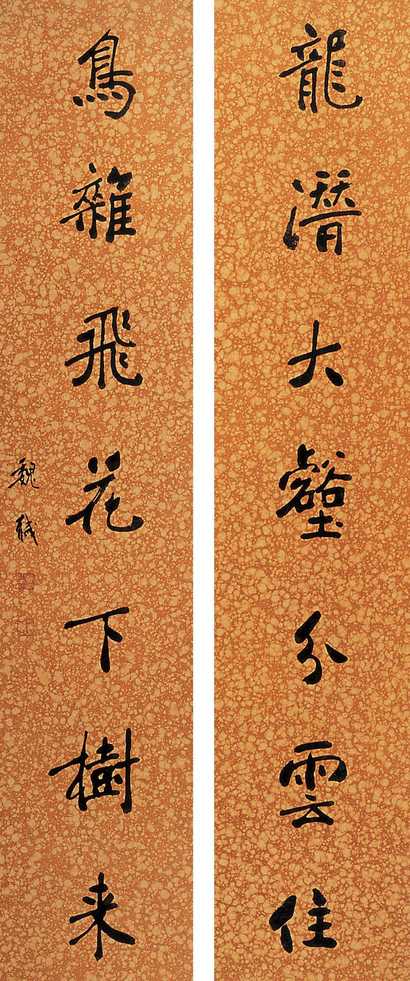 龍潛大壑分雲住
鳥雜飛花下樹来
魏戫